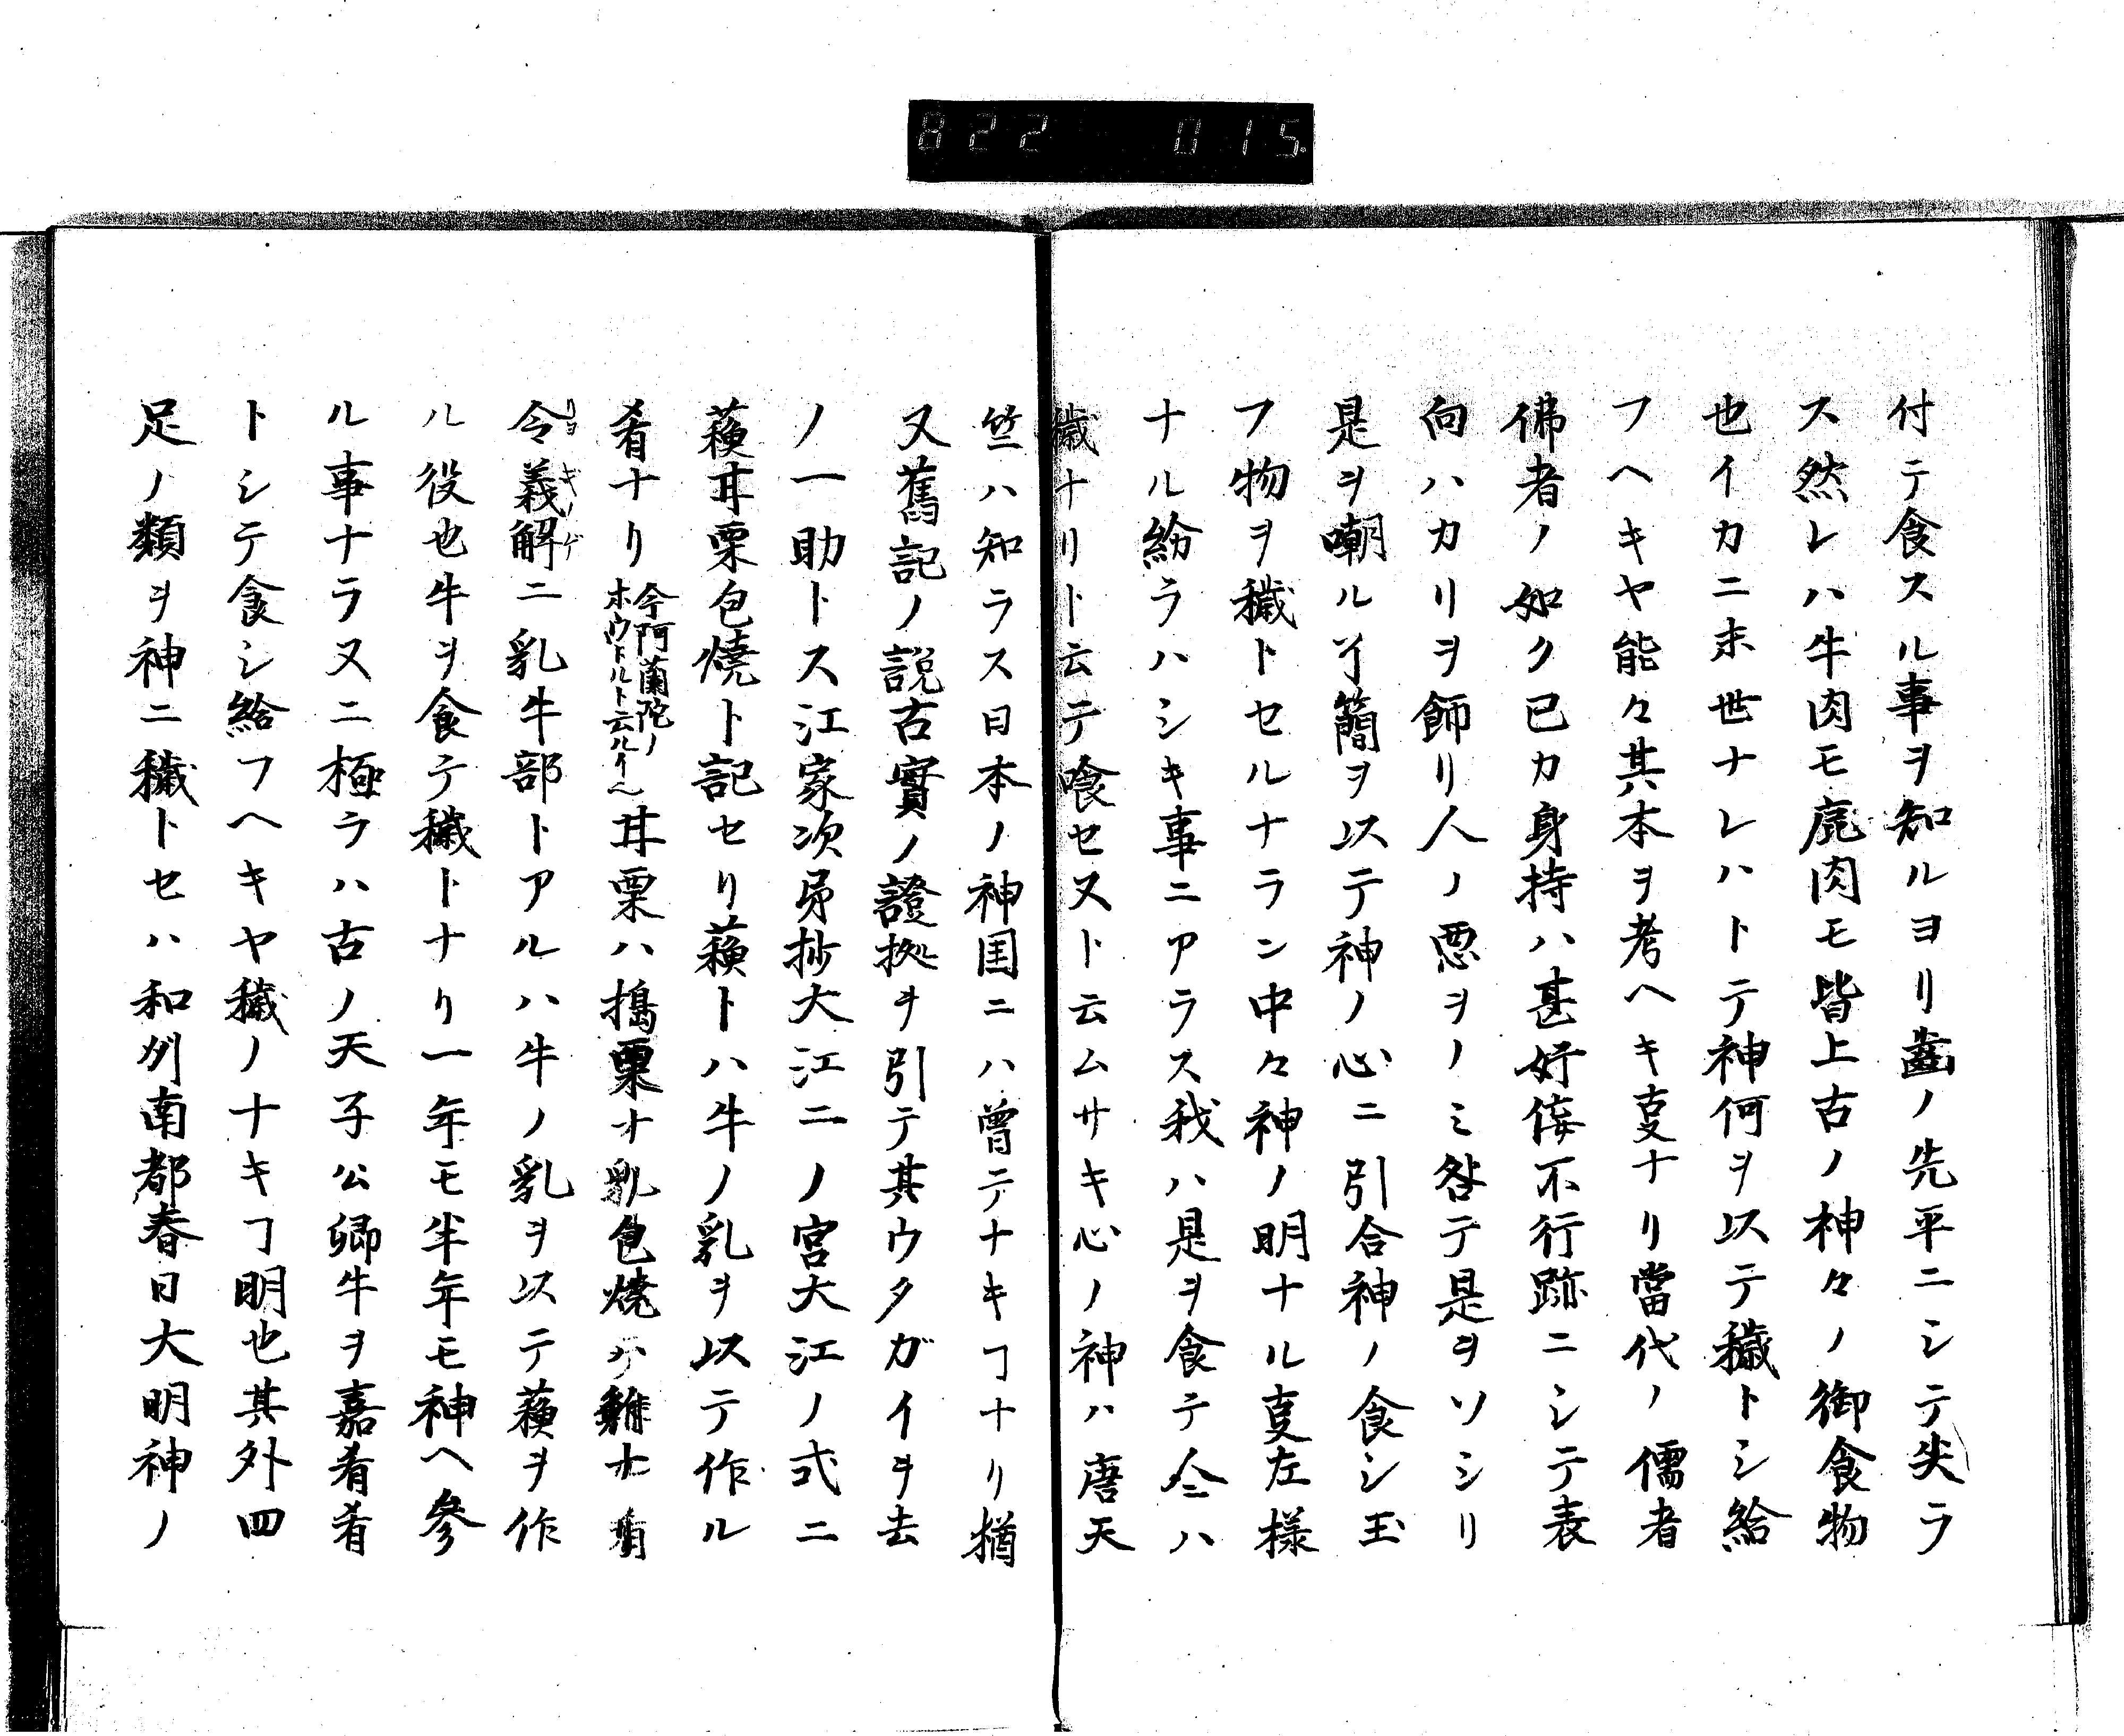 822 015.
付テ食スル事ヲ知ルヨリ齒ノ先平ニシテ尖ラ
ス然レハ牛肉モ鹿肉モ皆上古ノ神々ノ御食物
也イカニ末世ナレハトテ神何ヲ以テ穢トシ給
フヘキヤ能々其本ヲ考ヘキ叓ナリ當代ノ儒者
佛者ノ如ク已カ身持ハ甚奸侫不行跡ニシテ表
向ハカリヲ飾リ人ノ悪ヲノミ咎テ是ヲソシリ
是ヲ嘲ル了簡ヲ以テ神ノ心ニ引合神ノ食シ玉
フ物ヲ穢トセルナラン中々神ノ明ナル叓左様
ナル紛ラハシキ事ニアラス我ハ是ヲ食テ仝ハ
穢ナリト云テ喰セヌト云ムサキ心ノ神ハ唐天
竺ハ知ラス日本ノ神国ニハ曽テナキヿナリ猶
又舊記ノ説古實ノ證拠ヲ引テ其ウタガイヲ去
ノ一助トス江家次第抄大江二ノ宮大江ノ式ニ
蘓甘栗包焼ト記セリ蘓トハ牛ノ乳ヲ以テ作ル
肴ナリ今阿蘭陀ノホウトルト云ルイ也甘栗ハ搗栗オ乳包焼ハ雉オ肴
令義解リヨギノゲニ乳牛部トアルハ牛ノ乳ヲ以テ蘓ヲ作
ル役也牛ヲ食テ穢トナリ一年モ半年モ神ヘ參
ル事ナラヌニ極ラハ古ノ天子公卿牛ヲ嘉肴肴
トシテ食シ給フヘキヤ穢ノナキヿ明也其外四
足ノ類ヲ神ニ穢トセハ和州南都春日大明神ノ